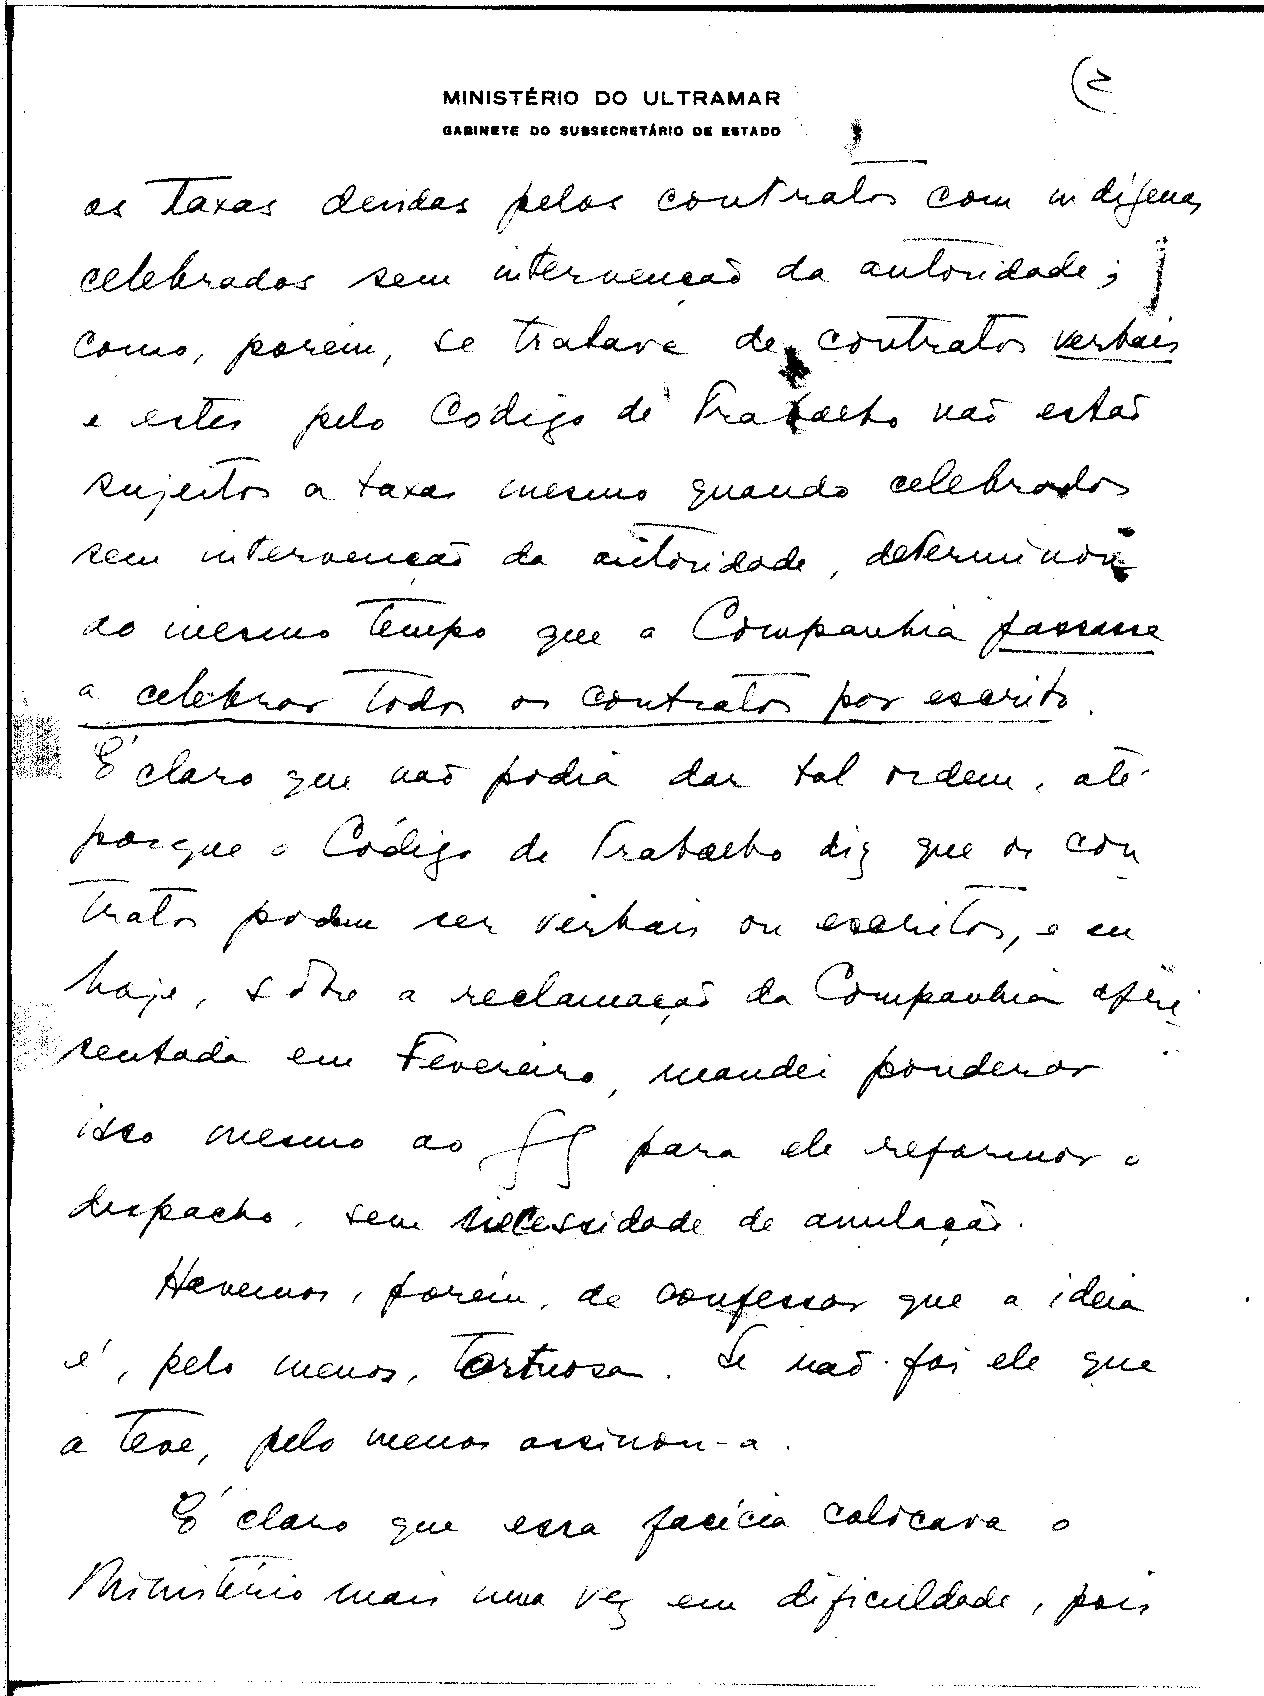 (2
MINISTÉRIO DO ULTRAMAR
GABINETE DO SUBSECRETÁRIO DE ESTADO
as taxas devidas pelos contratos com indígenas
celebrados sem intervenção da autoridade;
como, porém, se tratava de contratos verbais
e estes pelo Código de Trabalho não estão
sujeitos a taxas mesmo quando celebrados
sem intervenção da autoridade, determinou
ao mesmo tempo que a Companhia passasse
a celebrar todos os contratos por escrito.
É claro que não podia dar tal ordem, até
porque o Código de Trabalho diz que os con
tratos podem ser verbais ou escritos, e eu
hoje, sôbre a reclamação da Companhia apre
sentada em Fevereiro, mandei ponderar
isso mesmo ao GG para ele reformar o
despacho, sem necessidade de anulação.
Havemos, porém, de confessar que a ideia
é, pelo menos, tortuosa. Se não foi ele que
a teve, pelo menos assinou-a.
É claro que essa facécia colocava o
Ministério mais uma vez em dificuldade, pois